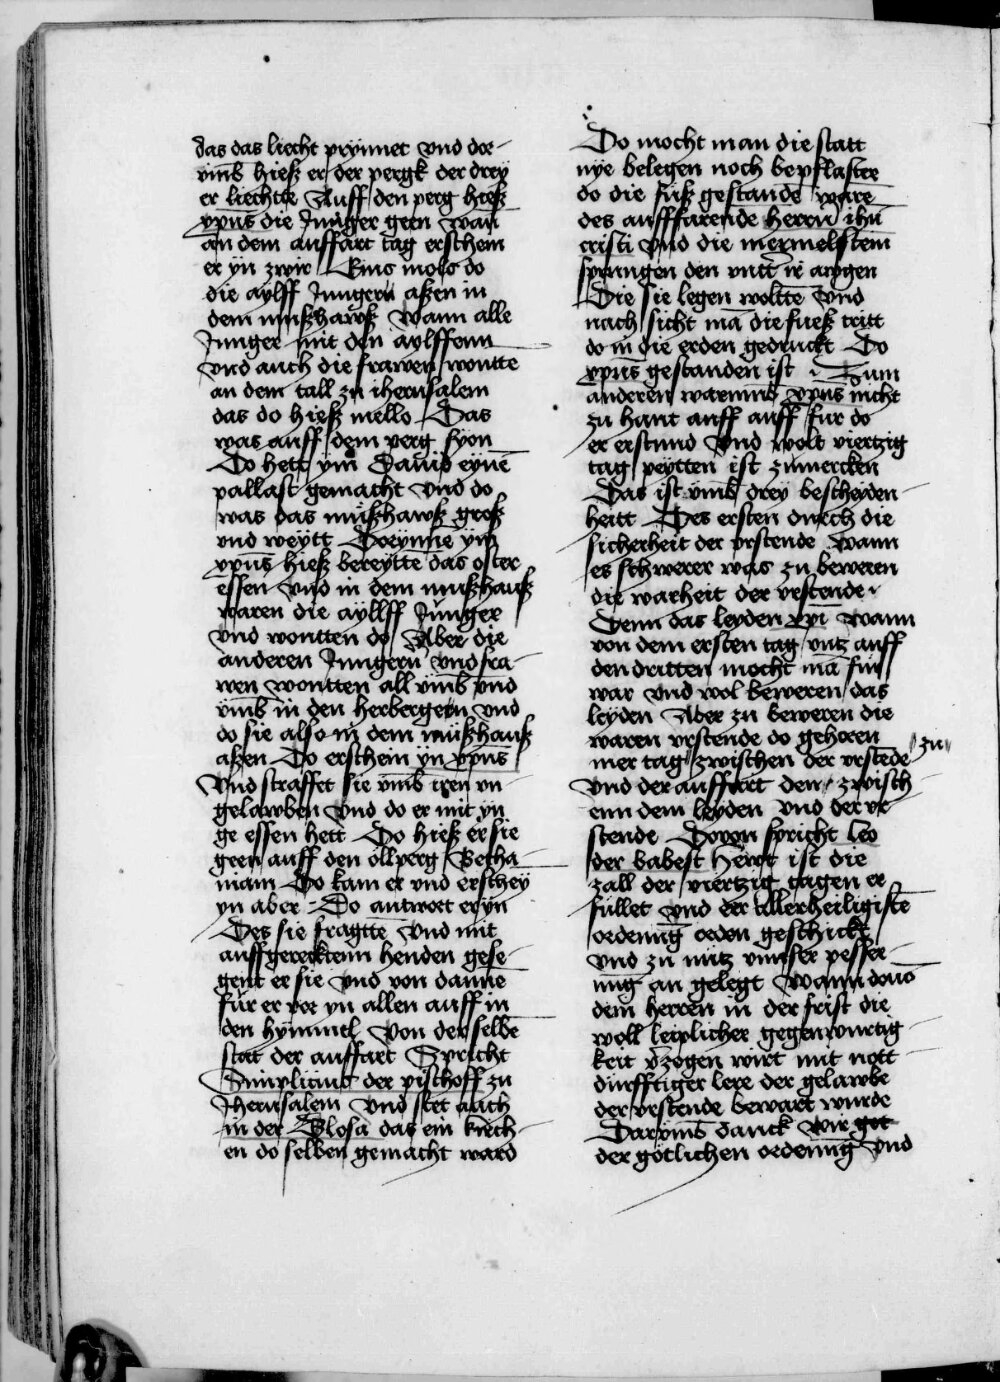 das das liecht prynnet vnd dor-
vmb hiesz er der pergk der drey
er liechtte Auff den perg hiesz
xpus die Junger geen wan
an dem auffart tag erschein
er yn zwir Eins mols do
die aylff Jungern aszen in
dem muszhawsz Wann alle
Junger mit den aylffenn
vnd auch die frawen wontte
an dem tall zu iherusalem
das do hiesz mello Das
was auff dem perg syon
Do hett ym Dauid eynē
pallast gemacht vnd do
was das muszhawsz grosz
vnd weytt Doeynne ym
xpus hiesz bereytte das oster
essen vnd in dem muszhausz
waren die ayllff Junger
vnd wontten do Aber die
anderen Jungern vnd fra-
wen wontten all vmb vnd
vmb in den herbergen vnd
do sie also in dem muszhausz
aszen Do erschein yn xpus
vnd straffet sie vmb iren vn-
gelawben vnd do er mit yn
ge essen hett Do hiesz er sie
geen auff den ollperg Betha-
niam Do kam er vnd erschey
yn aber Do antwort er yn
Des sie fragtte vnd mit
auffgerecktenn henden gese-
gent er sie vnd von dannē
für er vor yn allen auff in
den hymmel von der selbē
stat der auffart Spricht
Simplicius der pischoff zu
Jherusalem vnd stet auch
in der Glosa das ein kirch-
en do selben gemacht ward
Do mocht man die statt
nye belegen noch bepflaster
do die füsz gestandē ware
des aufffarende herrn ihū
cristi vnd die mermelstein
sprungen den vntter ir awgen
Die sie legen woltte vnd
nach sicht mā die fuesz tritt
do in die erden gedruckt Do
xpus gestanden ist Zum
anderen warumb xpus nicht
zu hant auff auff für do
er erstund vnd wolt viertzig
tag peytten ist zumercken
Das ist vmb drey bescheyden-
heitt Des ersten durch die
sicherheit der vrstende wann
es schwerer was zu beweren
die warheit der vrstende
Denn das leyden xpi wann
von dem ersten tag vntz auff
den dritten mocht mā für
war vnd wol beweren das
leyden Aber zu beweren die
waren vrstende do gehoren
mer tag zwischen der vrstēde zu
vnd der auffart den zwisch-
enn dem leyden vnd der vr
stende Dovon spricht leo
der babest Hewt ist die
zall der viertzig tagen er
füllet vnd der allerheiligistē
ordenūg orden geschickt
vnd zu nutz vnnser pesser-
ung an gelegt Wann
dem herren in der frist die
woll leiplicher gegenwurtig-
keit vzogen wirt mit nott-
dürfftiger lere der gelawbe
der vrstende bewart wurde
Darvmb danck wir got
der götlichen ordenūg vnd